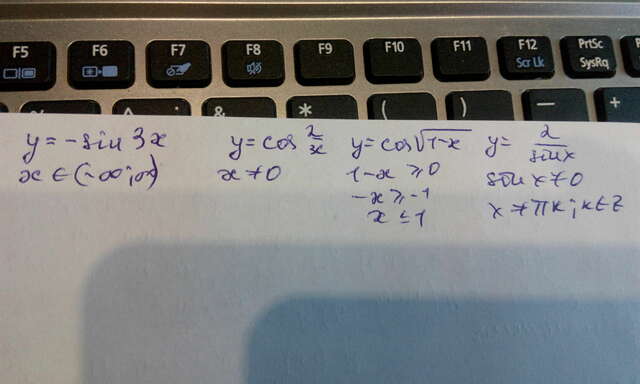 F5 F6 F7 F8 F9 F10 F11 F12 PrtSc
Scr Lk SysRq
% ^ & * ( ) — +
y = -sin 3x
x ∈ (-∞; ∞)
y = cos 2/x
x ≠ 0
y = cos√(1-x)
1-x ≥ 0
-x ≥ -1
x ≤ 1
y = 2/sin x
sin x ≠ 0
x ≠ πk; k∈Z